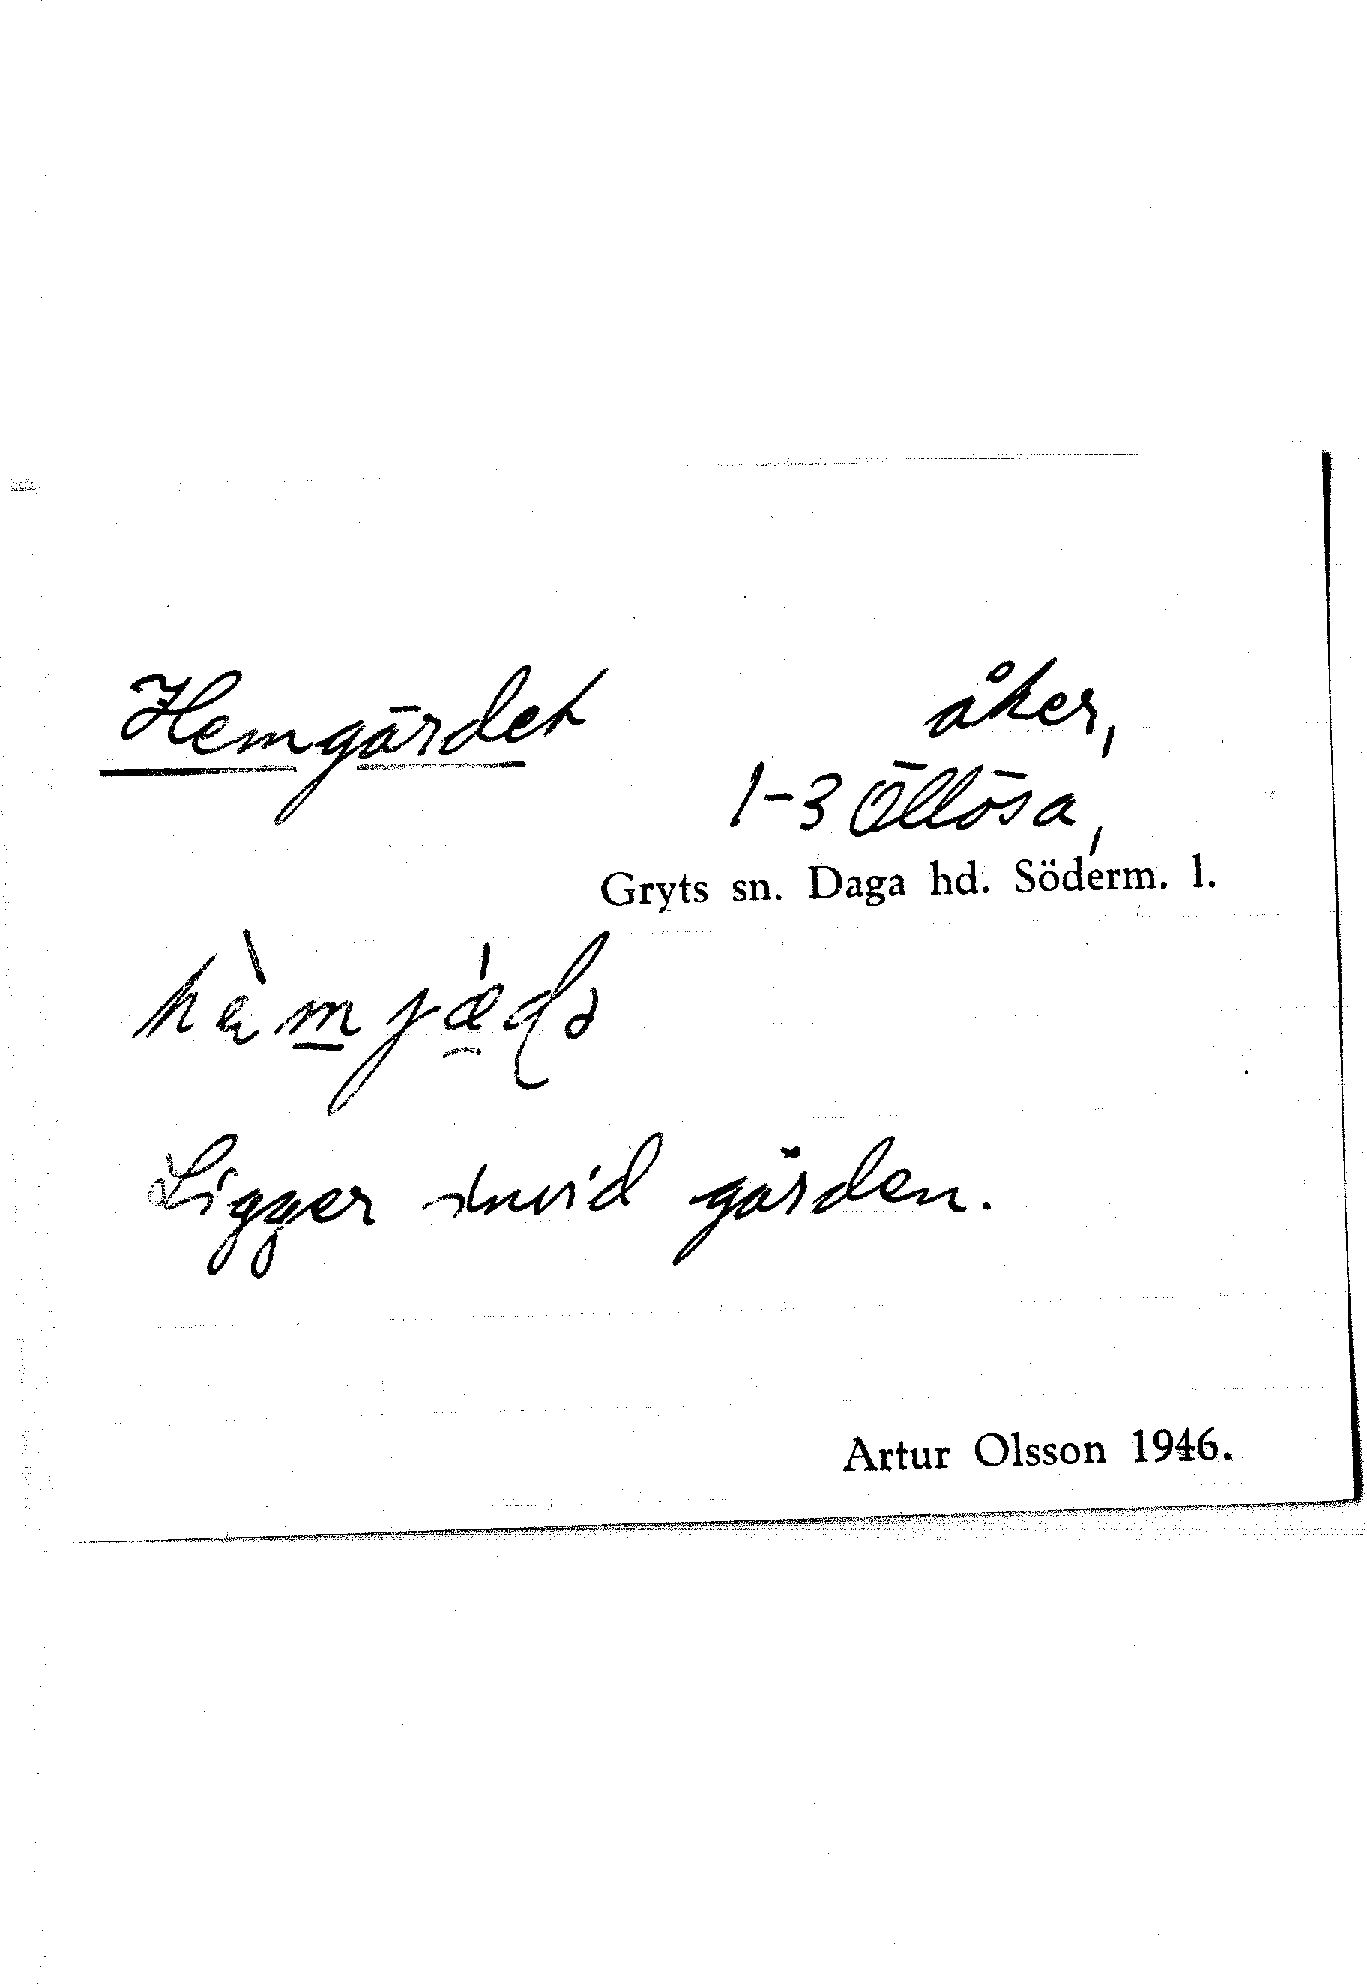 Hemgärdet
åker,
1-3 Öllösa,
Gryts sn. Daga hd. Söderm. l.
Ligger invid gården.
Artur Olsson 1946.